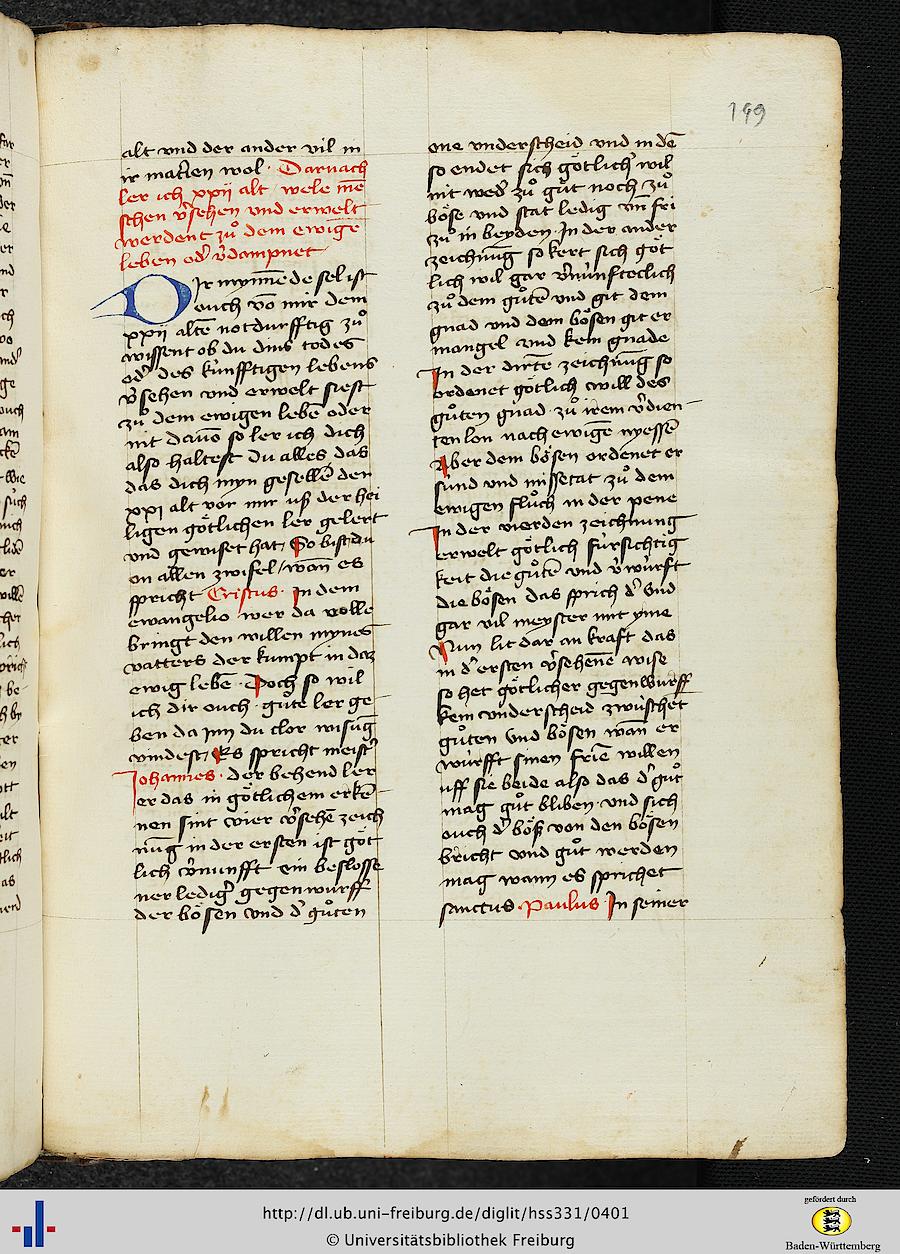 199
alt vnd der ander vil in
ir matten wol · Darnach
ler ich xxij alt / wele mē
schen v̓sehen vnd erwelt
werdent zů dem ewigē
leben od̓ v̓dampnet
Dir mynnēde sel ist
ouch vō mir dem
xxij altē notdurfftig zů
wissent ob du dins todes
od̓ des kúnfftigen lebens
v̓sehen vnd erwelt siest
zů dem ewigen lebē oder
nit dauō so ler ich dich
also haltest du alles das
das dich myn gesellē den
xxj alt vor mir uß der hei
ligen götlichen ler gelert
vnd gewiset hat / So bist du
on allen zwifel / wan̄ es
spricht Cristus · In dem
ewangelio wer da volle
bringt den willen mynes
vatters der kumpt in daz
ewig lebē · Doch so wil
ich dir ouch · gůte ler ge
ben da Inn du clor wisūg
vindest / Es spricht meist̓
Johannes · der behend ler
er das in götlichem erkē
nen sint vier v̓sehē zeich
nūg in der ersten ist göt
lich v̓nunfft ein beslosse
ner ledig̓ gegenwurff
der bösen vnd d̓ gůten
one vnderscheid vnd in dē
so endet sich götlich̓ wil
nit wed̓ zů gůt noch zů
böse vnd stat ledig vn̄ fri
zů in beyden · In der ander
zeichnūg so kert sich göt
lich wil gar v̓núnffteclich
zů dem gůtē vnd git dem
gnad vnd dem bösen git er
mangel vnd kein gnade
In der dirtē zeichnūg so
ordenet götlich will des
gůten gnad zů irem v̓dien
ten lon nach ewigē nyessē
Aber dem bösen ordenet er
súnd vnd missetat zů dem
ewigen flůch in der pene
In der vierden zeichnung
erwelt götlich fúrsichtig
keit die gůtē vnd v̓wúrft
die bösen das sprich d̓ vnd
gar vil meyster mit yme
Nun lit dar an kraft das
in d̓ ersten v̓sehene wise
so het götlicher gegenwurff
kein vnderscheid zwúschēt
gůten vnd bösen wan̄ er
wúrfft sinen frīē willen
uff sie beide also das d̓ gůt
mag gůt bliben · vnd sich
ouch d̓ böß von den bösen
bricht vnd gůt werden
mag wann es sprichet
sanctus · Paulus In seiner
http://dl.ub.uni-freiburg.de/diglit/hss331/0401
© Universitätsbibliothek Freiburg
gefördert durch
Baden-Württemberg